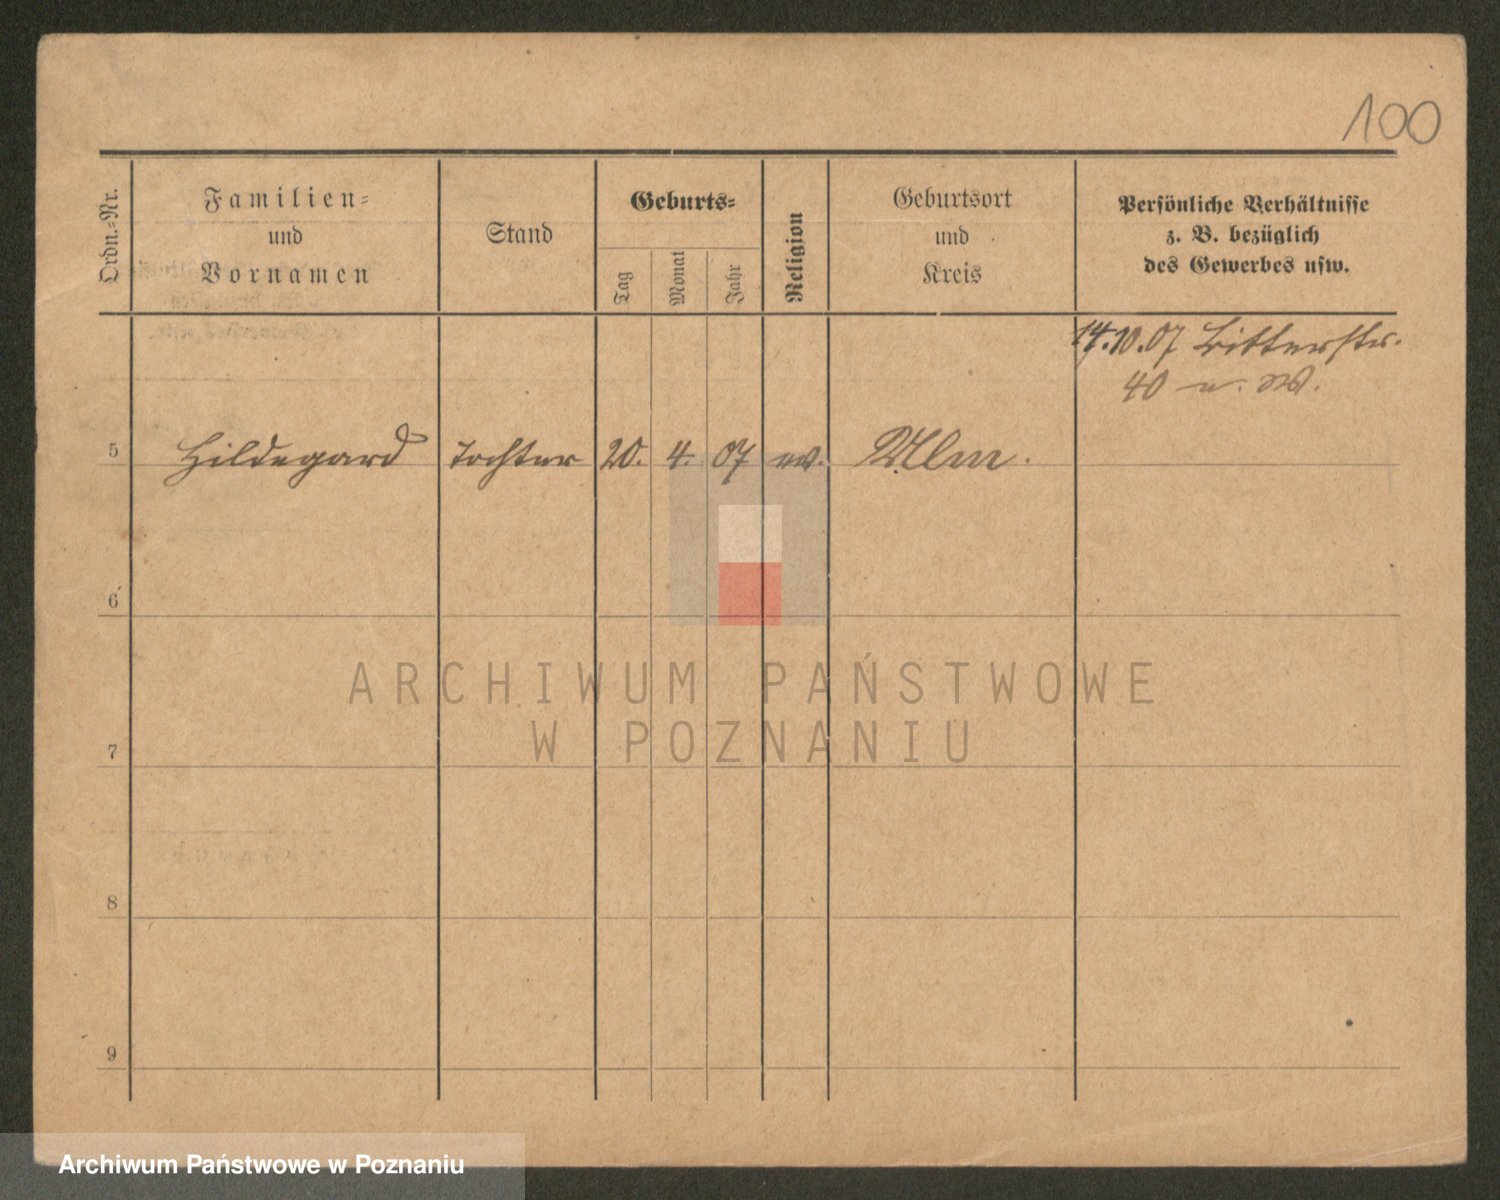 100
Ordn.-Nr.
Familien-
und
Vornamen
Stand
Geburts-
Tag
Monat
Jahr
Religion
Geburtsort
und
Kreis
Persönliche Verhältnisse
z. B. bezüglich
des Gewerbes usw.
14.10.07 Ritterstr.
40 n. W.
5 Hildegard Tochter 20. 4. 07 ev. Ulm.
6
7
8
9
ARCHIWUM PAŃSTWOWE
W POZNANIU
Archiwum Państwowe w Poznaniu